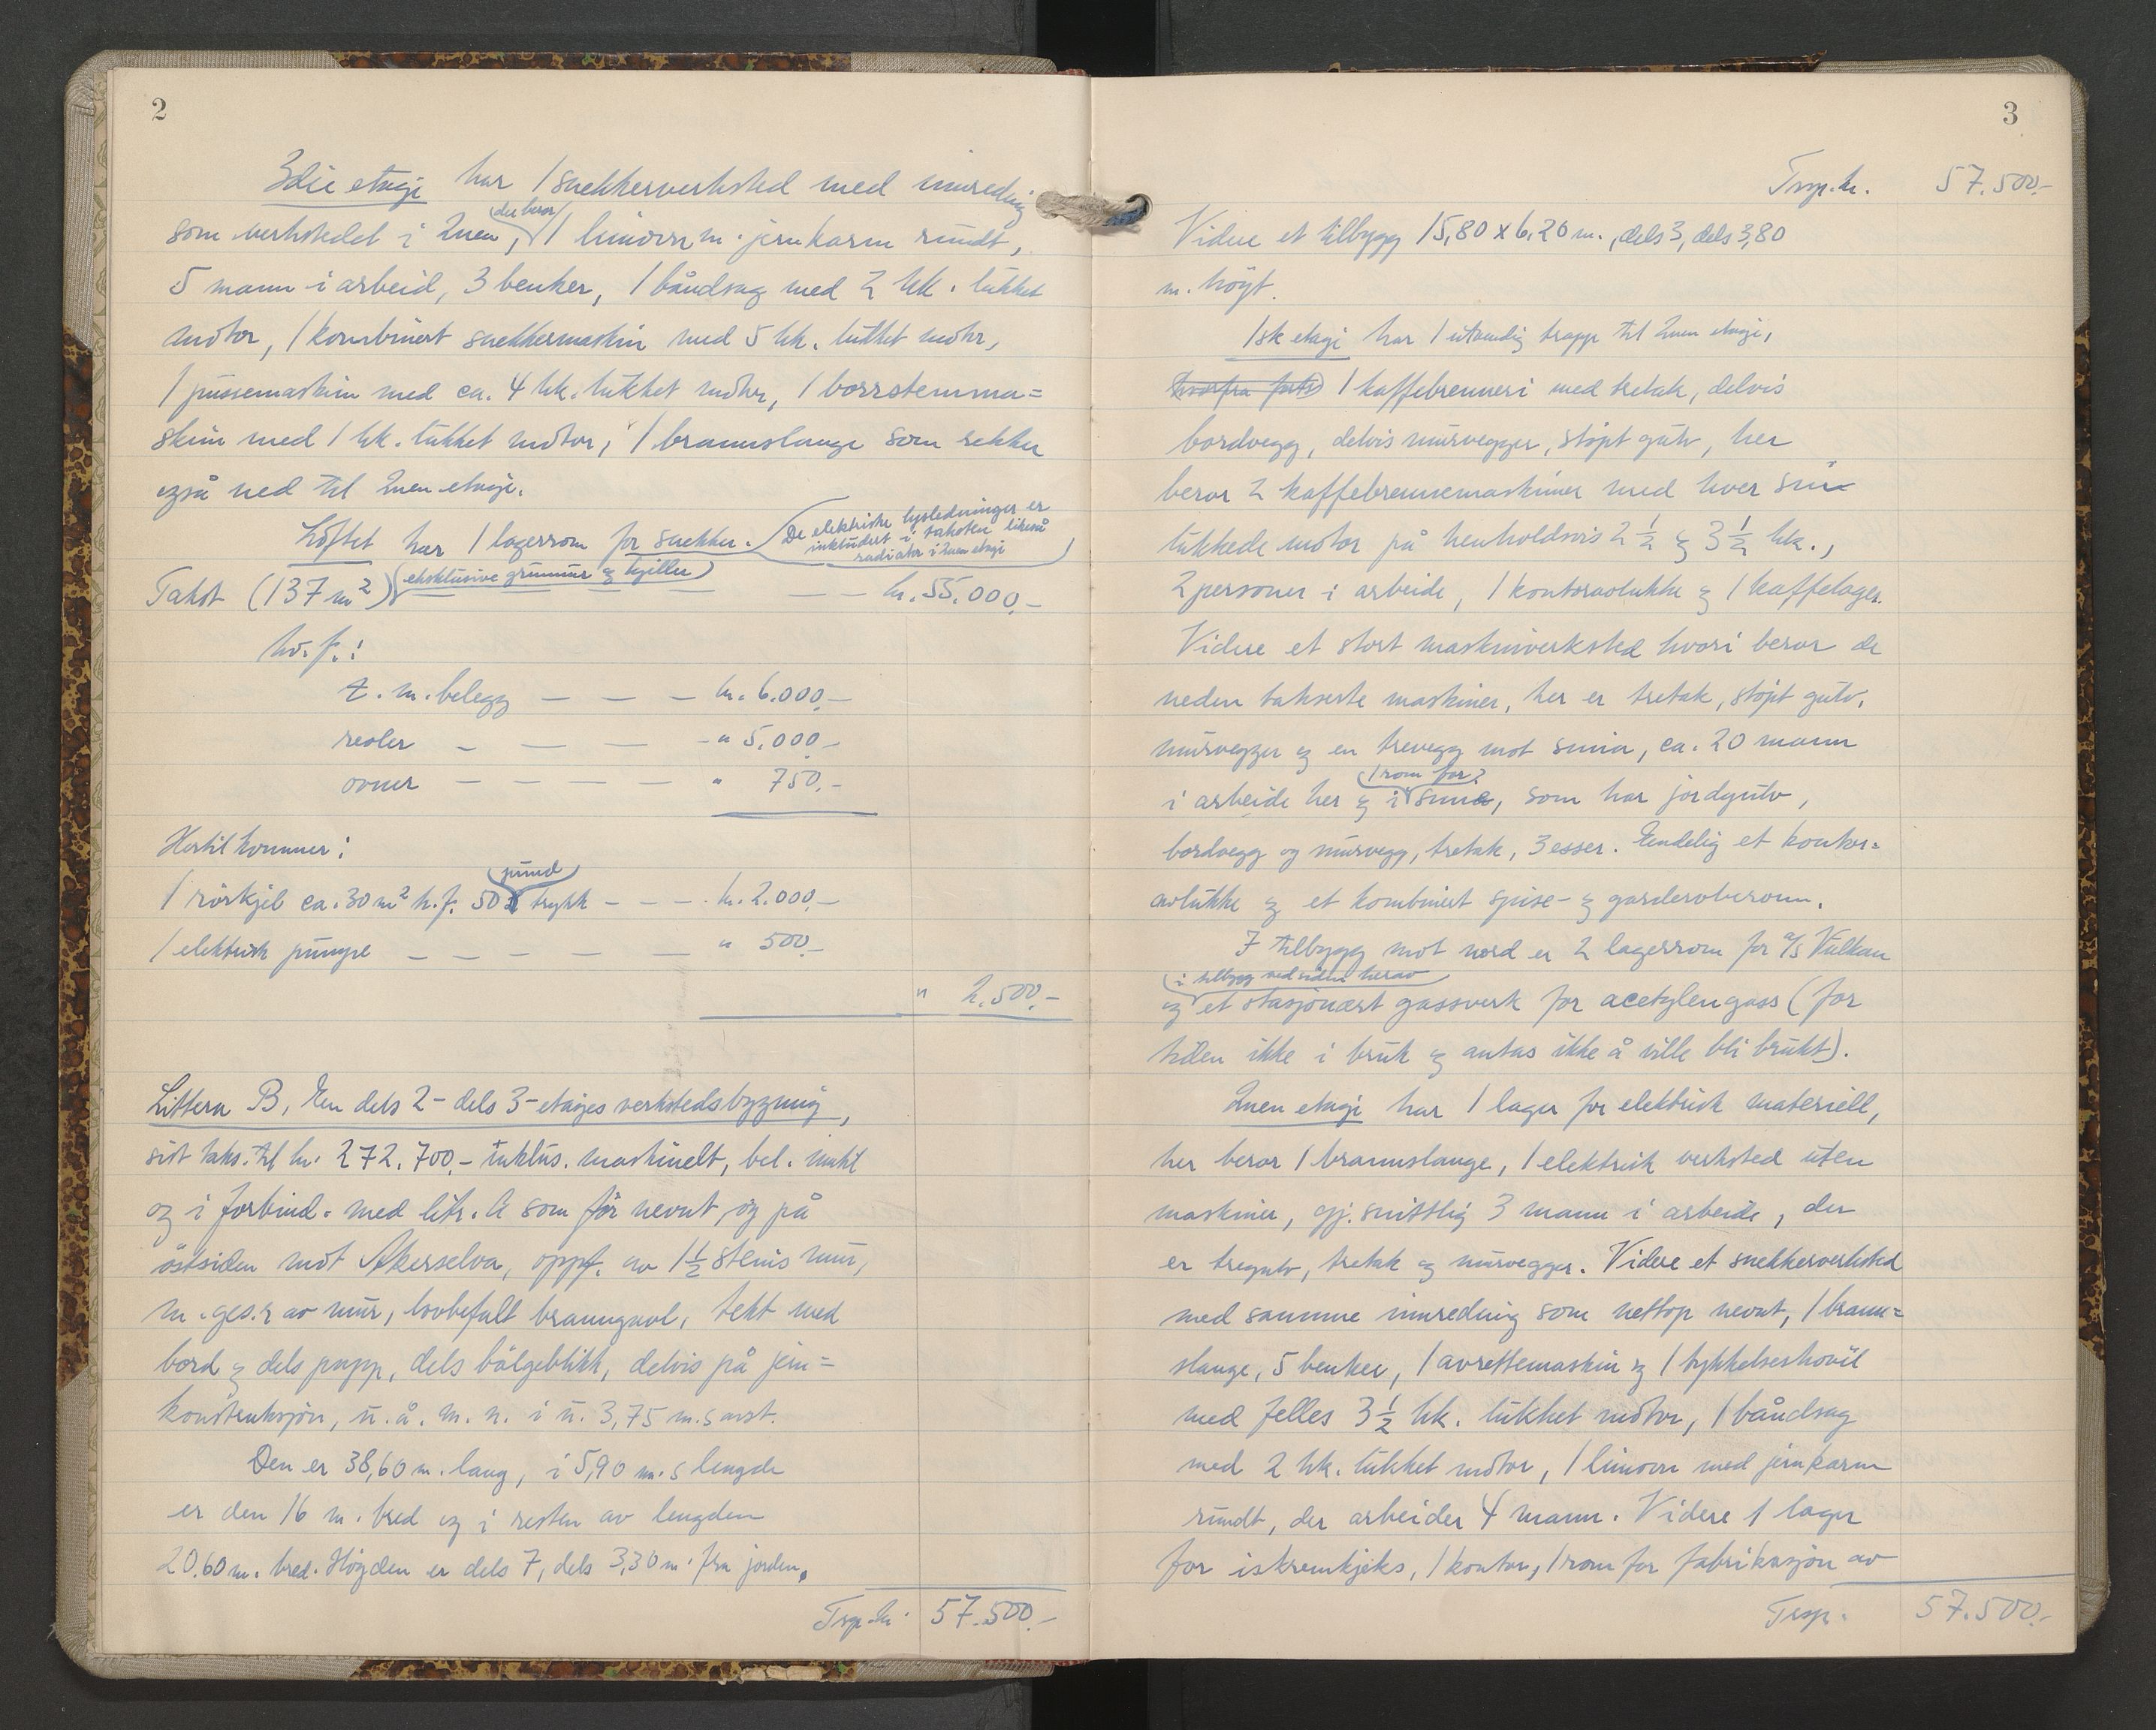 2
3die etasje har 1 snekkerverksted med innredning
som verkstedet i 2nen, (der beror) 1 limovn m. jernkarm rundt,
5 mann i arbeid, 3 benker, 1 båndsag med 2 hk. lukket
motor, 1 kombinert snekkermaskin med 5 hk. lukket motor,
1 pussemaskin med ca. 4 hk. lukket motor, 1 borrstemma=
skin med 1 hk. lukket motor, 1 brannslange som rekker
også ned til 2nen etasje.
Loftet har 1 lagerrom for snekker. (De elektriske lysledninger er
inkludert i taksten likeså
radiator i 2nen etasje)
Takst (137 m²) (eksklusive grunnmur & kjeller) — — kr. 55.000.-
hv. f.:
t. m. belegg — — — kr. 6.000.-
reoler — — — — " 5.000.-
ovner — — — — " 750.-
Hertil kommer:
1 rörkjel ca. 30 m² h.f. 50 pund trykk - - - kr. 2.000.-
1 elektrisk pumpe — — — — — " 500.-
" 2.500.-
Littera B. En dels 2- dels 3-etasjes verkstedsbygning,
sist taks. til kr. 272.700.- inklus. maskinelt, bel. inntil
og i forbind. med litr. A som för nevnt, og på
östsiden mot Akerselva, oppf. av 1½ stens mur,
m. ges. av mur, lovbefalt branngavl, tekt med
bord & dels papp, dels bölgeblikk, delvis på jern=
konstruksjon, u. å. m. n. i n. 3,75 m.s avst.
Den er 38,60 m. lang, i 5,90 m.s lengde
er den 16 m. bred og i resten av lengden
20.60 m. bred. Höyden er dels 7, dels 3,30 m. fra jorden.
Trsp. kr. 57.500.-
3
Trsp. kr. 57.500.-
Videre et tilbygg 15,80 x 6,20 m., dels 3, dels 3,80
m. höyt.
1ste etasje har 1 utvendig trapp til 2nen etasje,
hvorfra 1 kaffebrenneri med tretak, delvis
bordvegg, delvis murvegger, stöpt gulv, her
beror 2 kaffebrennemaskiner med hver sin
lukkede motor på henholdsvis 2½ & 3½ hk.,
2 personer i arbeide, 1 kontoravlukke & 1 kaffelager.
Videre et stort maskinverksted hvori beror de
neden takserte maskiner, her er tretak, stöpt gulv,
murvegger og en trevegg mot smia, ca. 20 mann
i arbeide her & i (1 rom for) smie, som har jordgulv,
bordvegg og murvegg, tretak, 3 esser. Endelig et kontor=
avlukke & et kombinert spise- & garderoberom.
I tilbygg mot nord er 2 lagerrom for A/S Vulkan
& (i tilbygg ved siden herav) et stasjonært gassverk for acetylengass (for
tiden ikke i bruk & antas ikke å ville bli brukt).
2nen etasje har 1 lager for elektrisk materiell,
her beror 1 brannslange, 1 elektrisk verksted uten
maskiner, gj.snittlig 3 mann i arbeide, der
er tregulv, tretak og murvegger. Videre et snekkerverksted
med samme innredning som nettop nevnt, 1 brann=
slange, 5 benker, 1 avrettemaskin og 1 tykkelseshövel
med felles 3½ hk. lukket motor, 1 båndsag
med 2 hk. lukket motor, 1 limovn med jernkarm
rundt, der arbeider 4 mann. Videre 1 lager
for iskremkjeks, 1 kontor, 1 rom for fabrikasjon av
Trsp. 57.500.-